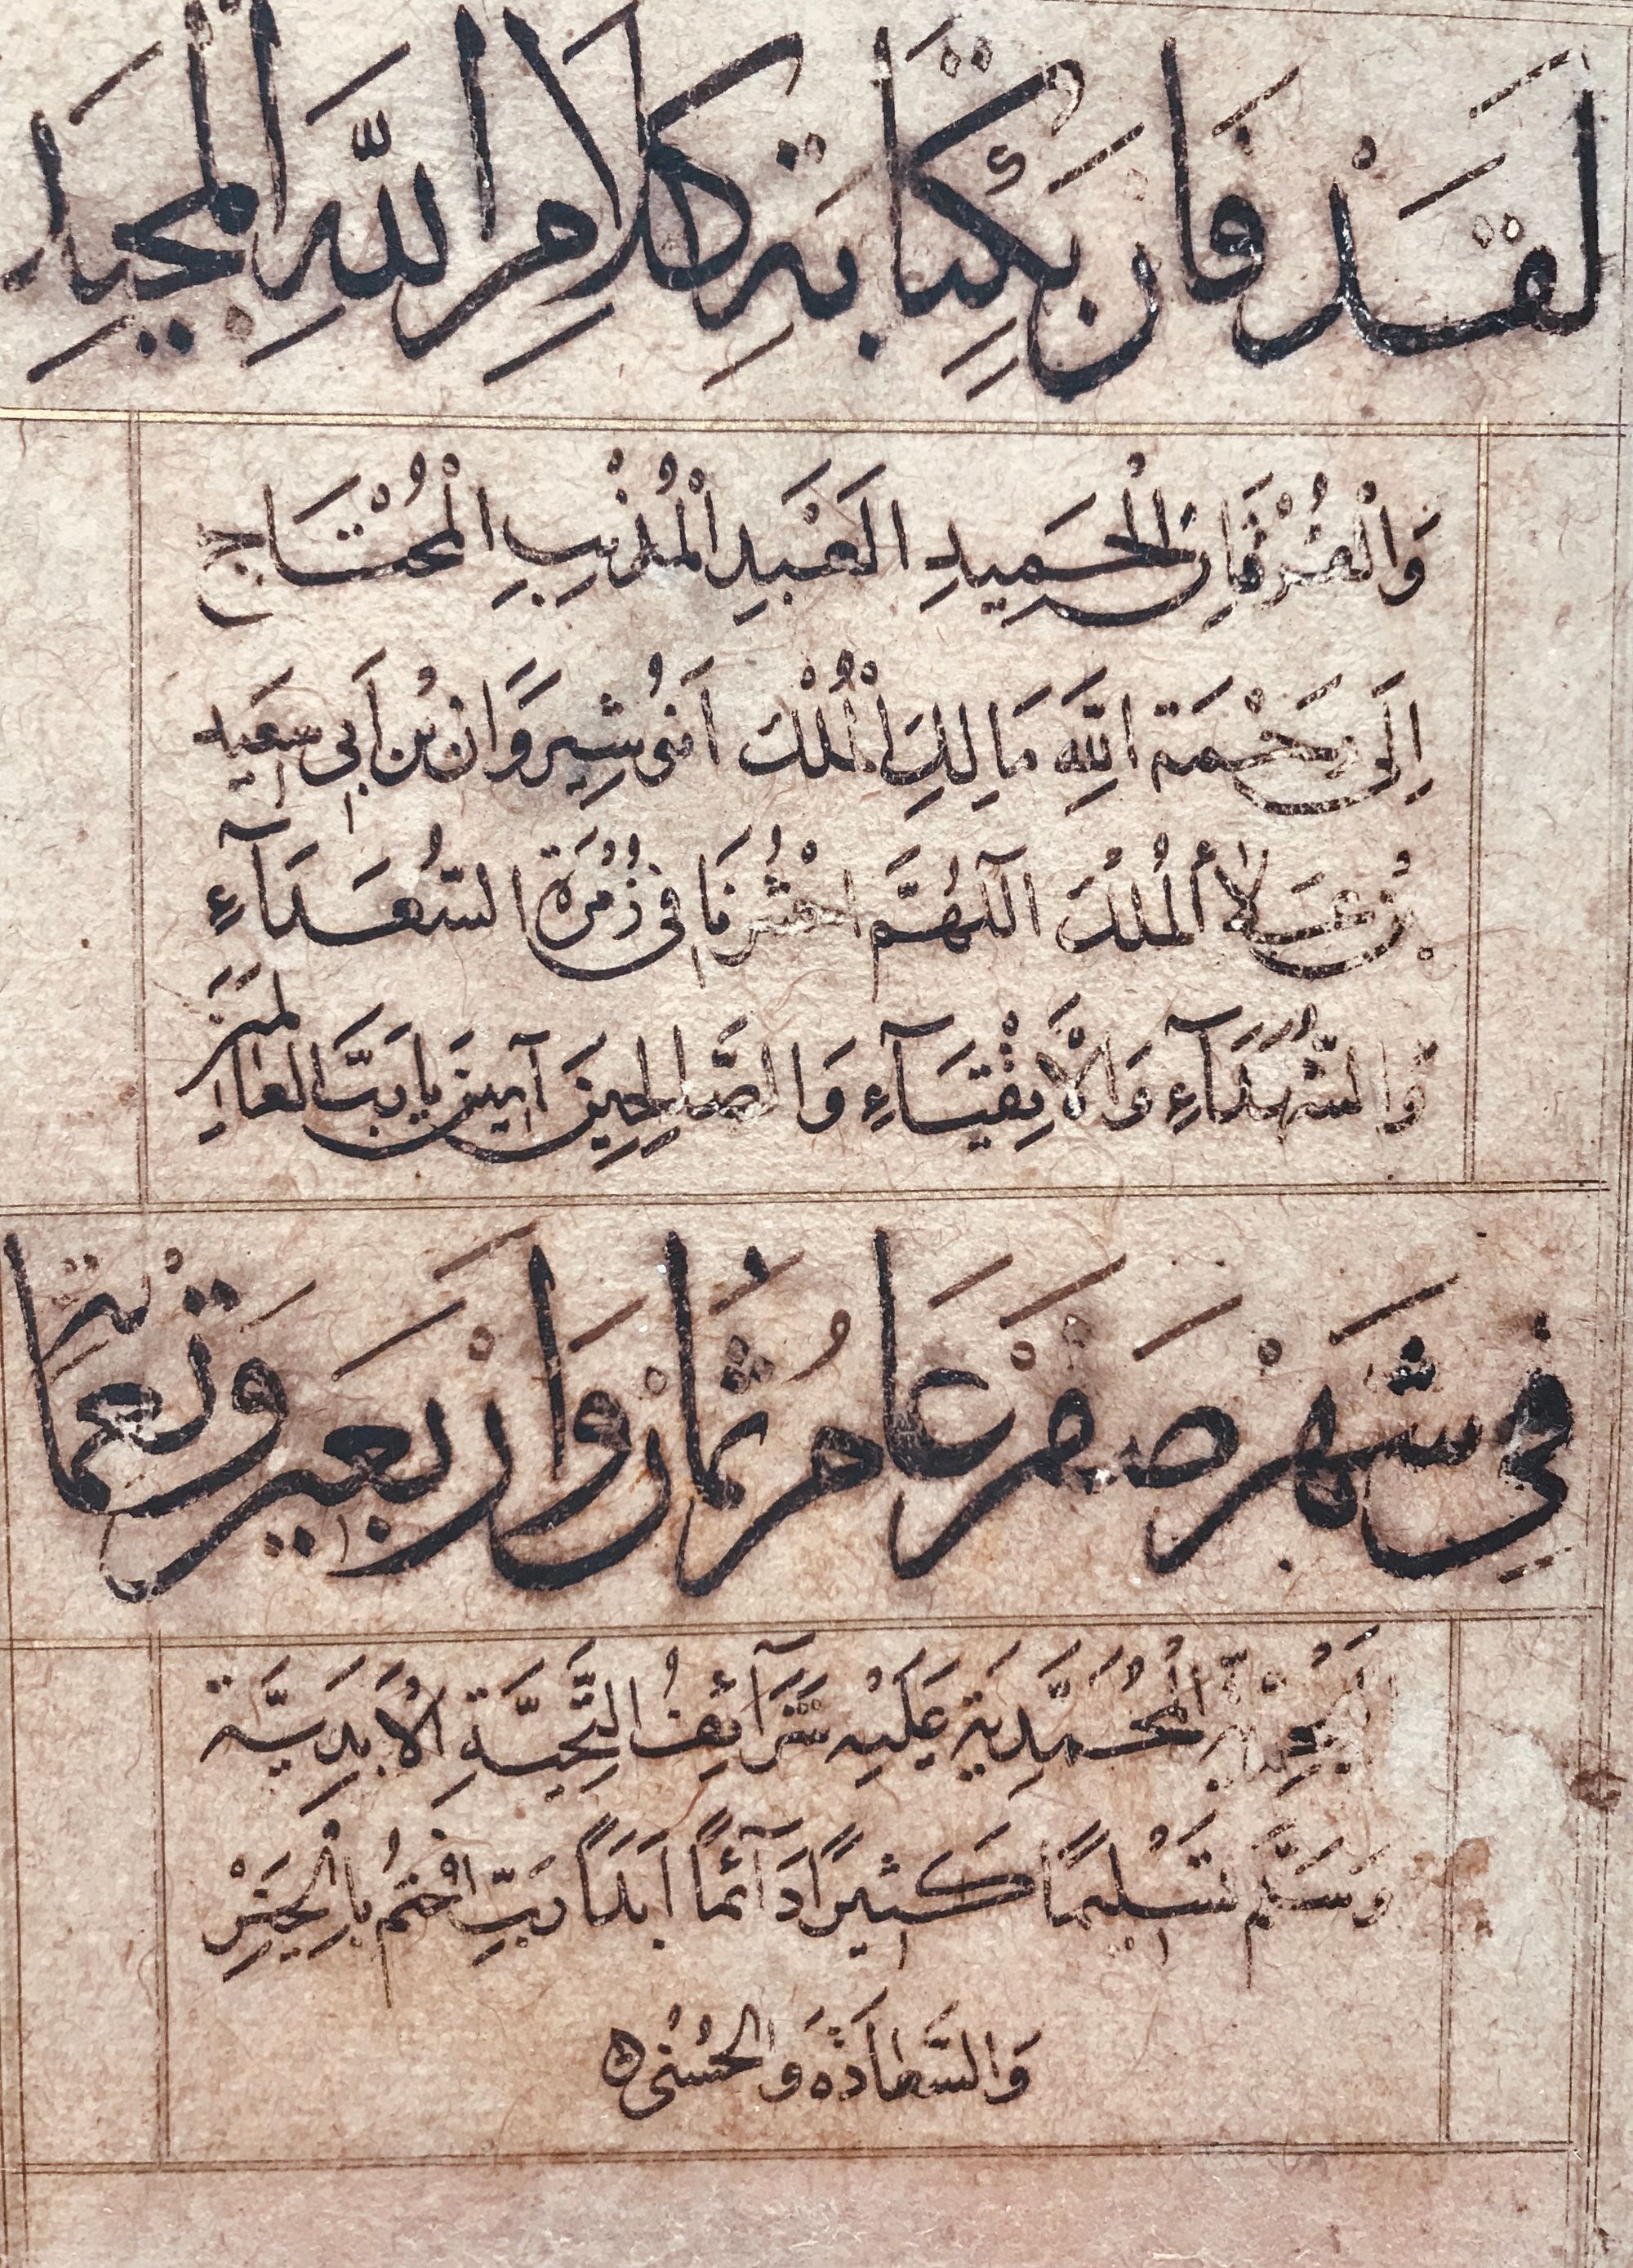 لَقَدْ فَازَ بِكِتَابَةِ كَلَامِ اللّٰهِ الْمَجِيدِ
وَالْفُرْقَانِ الْحَمِيدِ الْعَبْدِ الْمُذْنِبِ الْمُحْتَاجِ
اِلَى رَحْمَة اللَّهِ مَالِكِ الْمُلْكِ اَنُوشِيرَوَان بْن اَبِي سَعِيد
بْن عَلَاْ الْمُلُك اللّٰهُمَّ احْشُرنَا فِي زُمْرَةِ السُّعَدَآءِ
وَالشُّهَدَآءِ وَالْاَتْقِيَآءِ وَالصَّالِحِينَ آمِينَ يَا رَبَّ الْعَالَمِينَ
فِي شَهْرِ صَفَرْ عَام ثَمَان وَاَرْبَعِين وَتِسْعمِائة
الْمُحَمَّدِيَة عَلَيْهِ شَرَآئِفُ التَّحِيَّةِ الْاَبَدِيَّة
وَسَلَّم تَسْلِيمًا كَثِيرًا دَآئمًا اَبَدًا رَبِّ اخْتُم بِالْخَيْرِ
وَالسَّعَادَة وَالْحُسْنٰى